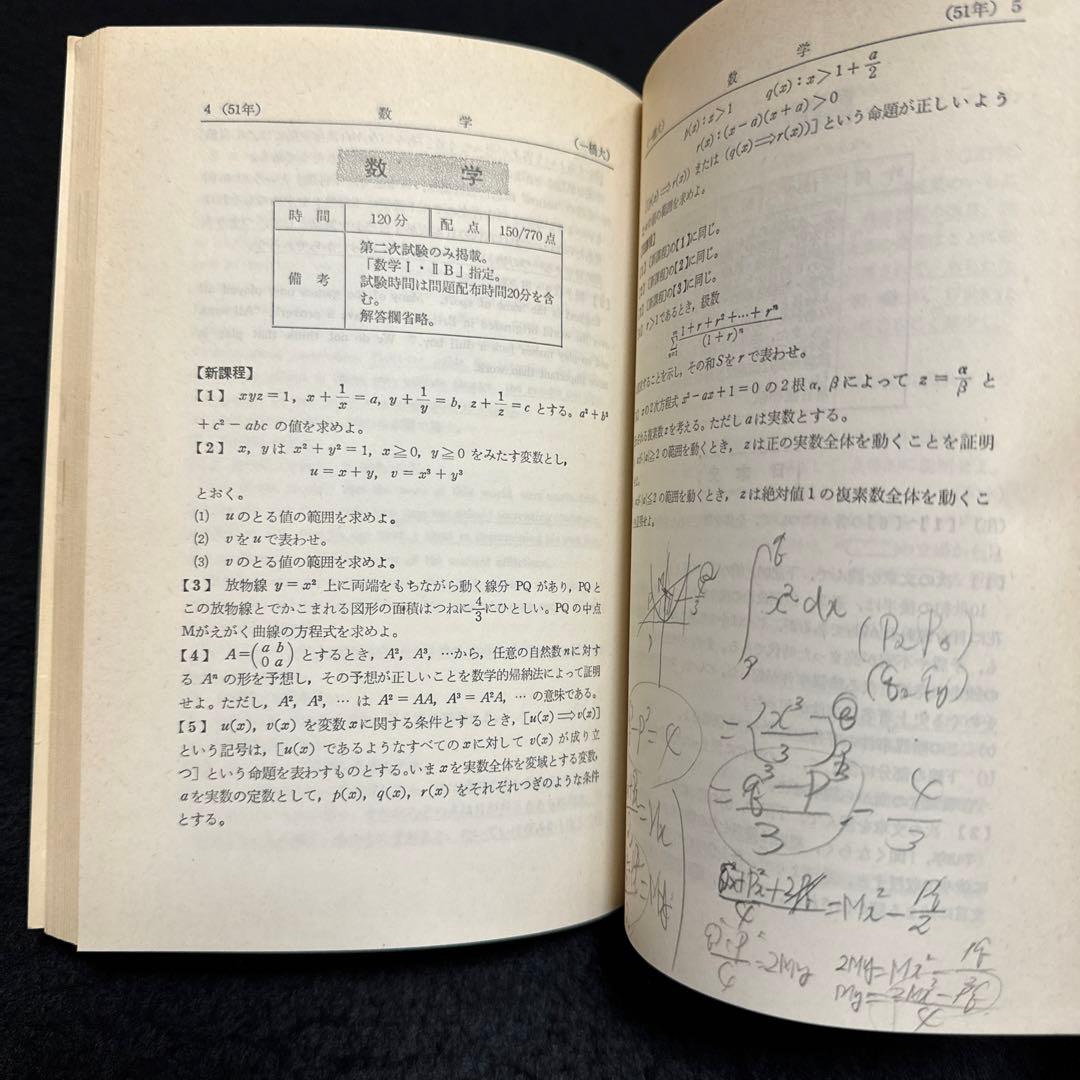 4 (51年) 数 学 (一橋大)
数 学
時 間 120分 配 点 150/770点
備 考 第二次試験のみ掲載。
「数学Ⅰ・ⅡB」指定。
試験時間は問題配布時間20分を含
む。
解答欄省略。
【新課程】
【1】 xyz=1, x+1/x=a, y+1/y=b, z+1/z=c とする。a²+b²
+c²-abc の値を求めよ。
【2】 x, y は x²+y²=1, x≧0, y≧0 をみたす変数とし,
u=x+y, v=x³+y³
とおく。
(1) u のとる値の範囲を求めよ。
(2) v を u で表わせ。
(3) v のとる値の範囲を求めよ。
【3】 放物線 y=x² 上に両端をもちながら動く線分 PQ があり, PQ と
この放物線とでかこまれる図形の面積はつねに4/3にひとしい。PQ の中点
M がえがく曲線の方程式を求めよ。
【4】 A=(a b
0 a) とするとき, A², A³, …から, 任意の自然数 n に対す
る Aⁿ の形を予想し, その予想が正しいことを数学的帰納法によって証明
せよ。ただし, A², A³, … は A²=AA, A³=A²A, … の意味である。
【5】 u(x), v(x) を変数 x に関する条件とするとき, [u(x)⟹v(x)]
という記号は, [u(x) であるようなすべての x に対して v(x) が成り立
つ] という命題を表わすものとする。いま x を実数全体を変域とする変数,
a を実数の定数として, p(x), q(x), r(x) をそれぞれつぎのような条件
とする。
数 学 (51年) 5
p(x): x>1 q(x): x>1+a/2
r(x): (x-a)(x+a)>0
(p(x)⟹r(x)) または (q(x)⟹r(x))] という命題が正しいよう
の値の範囲を求めよ。
の【1】に同じ。
の【2】に同じ。
の【3】に同じ。
r>1であるとき, 級数
Σ (1+r+r²+…+rⁿ)/(1+r)ⁿ
することを示し, その和 S を r で表わせ。
の2次方程式 x²-ax+1=0 の2根 α, β によって z=α/β と
る複素数 z を考える。ただし a は実数とする。
|a|≧2 の範囲を動くとき, z は正の実数全体を動くことを証明
|a|≦2 の範囲を動くとき, z は絶対値1の複素数全体を動くこ
x²dx
= x³/3
q³-P³/3 - 4/3
=Mx²-
=2My 2My=Mx²-
My=